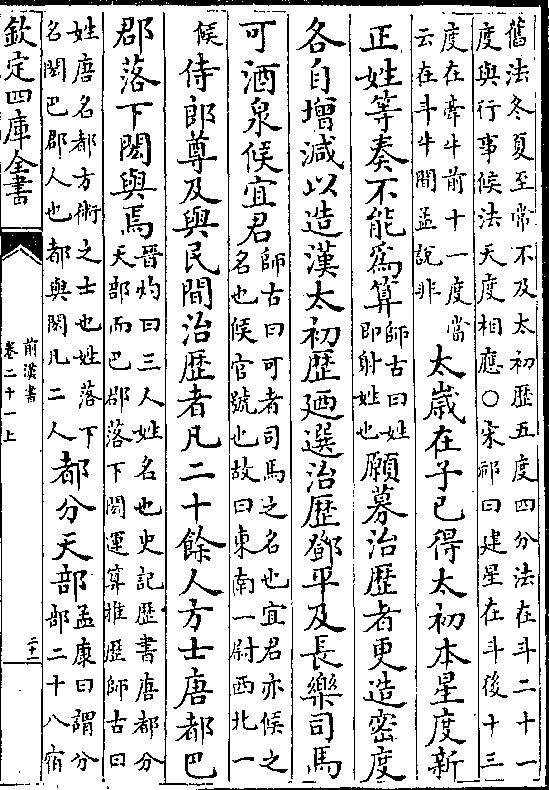 舊法冬夏至常不及太初歷五度四分法在斗二十一
度與行事候法天度相應○宋祁曰建星在斗後十三
度在牽牛前十一度當
云在斗牛間孟說非
太歲在子已得太初本星度新
正姓等奏不能爲算
師古曰姓
即射姓也
願募治歷者更造密度
各自增減以造漢太初歷廼選治歷鄧平及長樂司馬
可酒泉候宜君
師古曰可者司馬之名也宜君亦候之
名也候官號也故曰東南一尉西北一
候
侍郎尊及與民間治歷者凡二十餘人方士唐都巴
郡落下閎與焉
晉灼曰三人姓名也史記歷書唐都分
天部而巴郡落下閎運算推歷師古曰
姓唐名都方術之士也姓落下
名閎巴郡人也都與閎凡二人
都分天部
孟康曰謂分
部二十八宿
欽定四庫全書
前漢書
卷二十一上